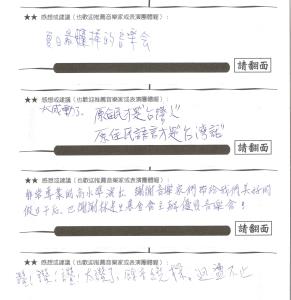 ★★ 感想或建議(也歡迎推薦音樂家或表演團體喔):
夏日最棒的音樂會
請翻面
★★ 感想或建議(也歡迎推薦音樂家或表演團體喔):
太感動了.
原住民才是"台灣人"
原住民語言才是"台灣話"
請翻面
★★ 感想或建議(也歡迎推薦音樂家或表演團體喔):
非常專業的高水準演出 謝謝音樂家們帶給我們美好的
假日午后,也謝謝 基金會主辦優質音樂會!
請翻面
★★ 感想或建議(也歡迎推薦音樂家或表演團體喔):
讚!讚!讚!太讚了